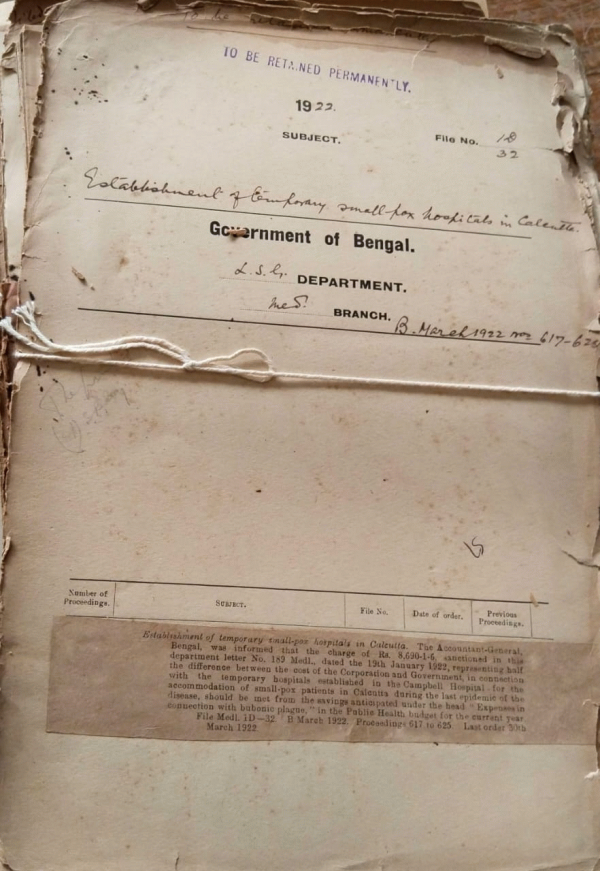 TO BE RETAINED PERMANENTLY.
1922.
SUBJECT. File No. 1D
32
Establishment of temporary small-pox hospitals in Calcutta.
Government of Bengal.
L. S. G. DEPARTMENT.
Med. BRANCH.
B. March 1922 nos 617-625
Number of Proceedings. SUBJECT. File No. Date of order. Previous Proceedings.
Establishment of temporary small-pox hospitals in Calcutta. The Accountant-General,
Bengal, was informed that the charge of Rs. 8,690-1-6, sanctioned in this
department letter No. 189 Medl., dated the 19th January 1922, representing half
the difference between the cost of the Corporation and Government, in connection
with the temporary hospitals established in the Campbell Hospital for the
accommodation of small-pox patients in Calcutta during the last epidemic of the
disease, should be met from the savings anticipated under the head "Expenses in
connection with bubonic plague," in the Public Health budget for the current year
File Medl. 1D-32. B March 1922. Proceedings 617 to 625. Last order 30th
March 1922